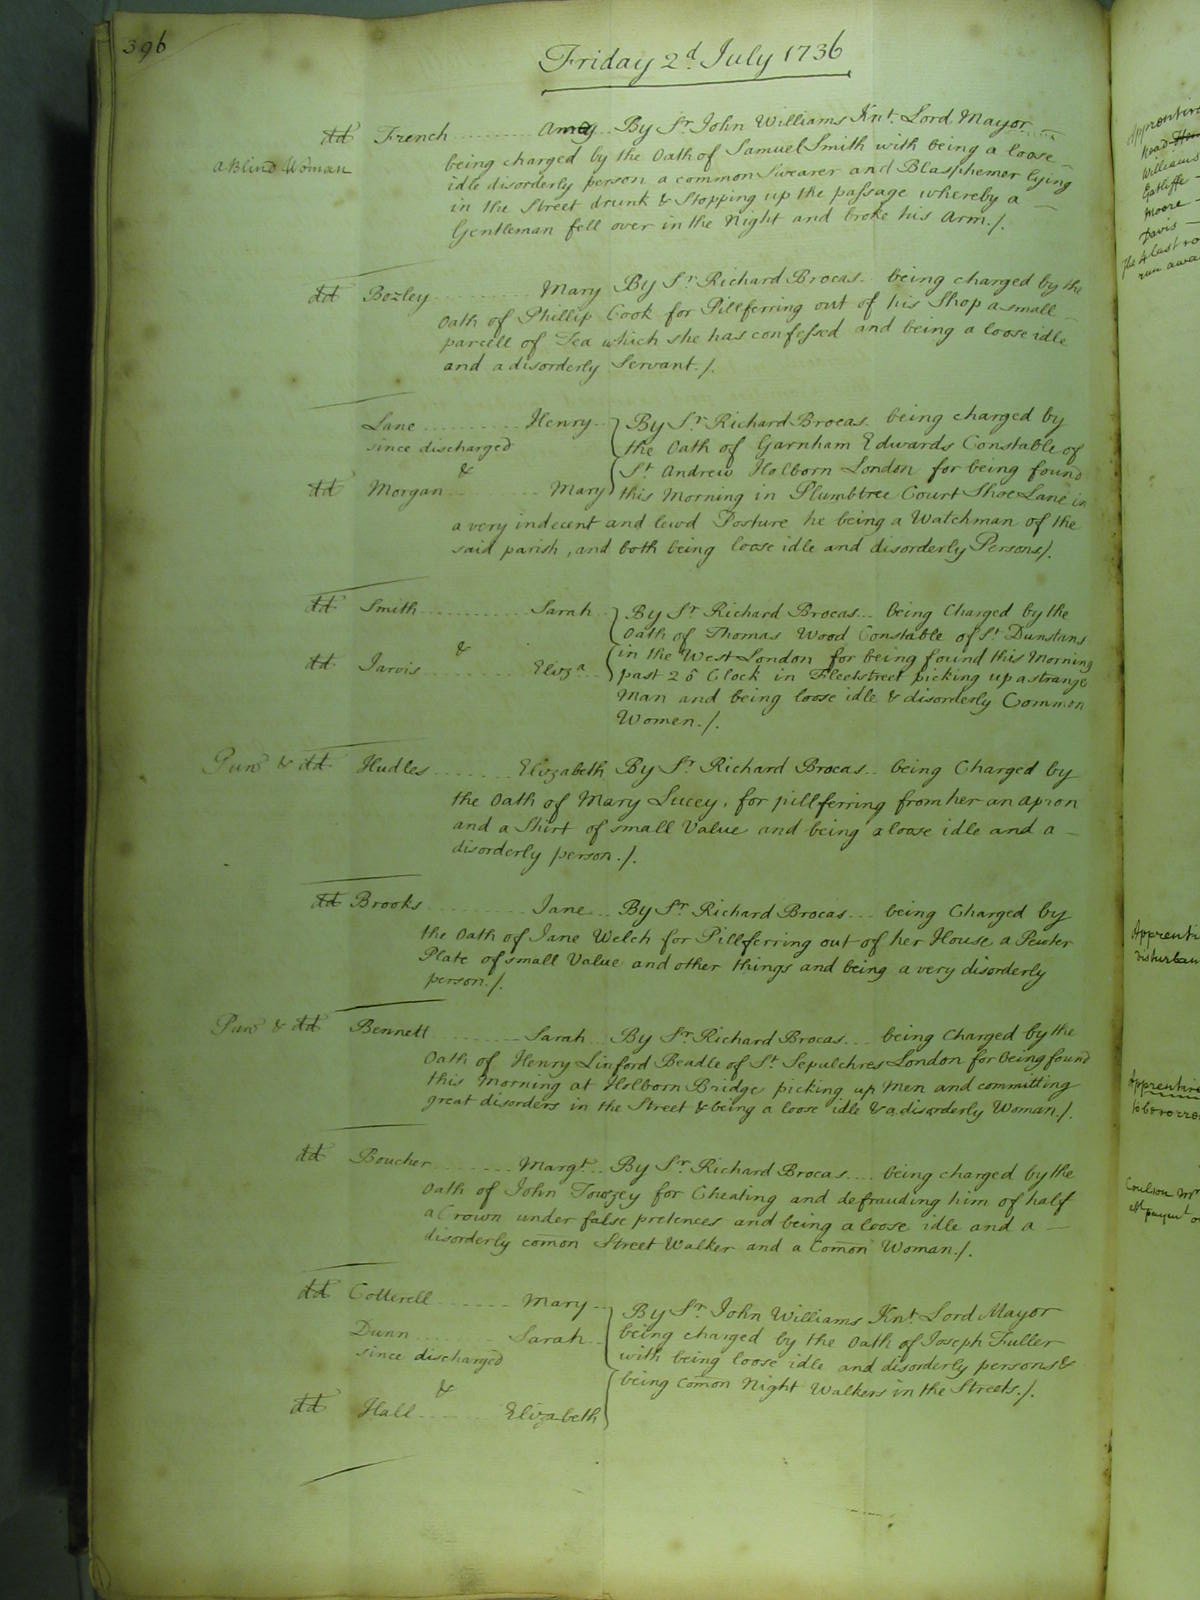 396
Friday 2d. July 1736
dd French By Sr. John Williams Knt. Lord Mayor
A Blind Woman
being charged by the Oath of Samuel Smith with being a loose
idle disorderly person a common Swearer and Blasphemer lying
in the Street drunk & Stopping up the passage whereby a
Gentleman fell over in the Night and broke his Arm./.
dd Bozley Mary By Sr. Richard Brocas being charged by the
Oath of Phillip Cook for Pillferring out of his Shop a small
parcell of Tea which she has confessed and being a loose idle
and a disorderly Servant./.
Lane Henry By Sr. Richard Brocas being charged by
since discharged the Oath of Garnham Edwards Constable of
& St. Andrew Holborn London for being found
dd Morgan Mary this Morning in Plumbtree Court Shoe Lane in
a very indecent and lewd Posture he being a Watchman of the
said parish, and both being loose idle and disorderly Persons/.
dd Smith Sarah By Sr. Richard Brocas being Charged by the
Oath of Thomas Wood Constable of St Dunstans
& in the West London for being found this Morning
dd Jarvis Eliza past 2 o Clock in Fleetstreet picking up a strange
Man and being loose idle & disorderly Common
Women./.
Pun'd & dd Hudles Elizabeth By Sr. Richard Brocas being Charged by
the Oath of Mary Lucey, for pillferring from her an apron
and a Shirt of small Value and being a loose idle and a
disorderly person./.
dd Brooks Jane By Sr. Richard Brocas being Charged by
the Oath of Jane Welch for Pillferring out of her House a Pewter
Plate of small Value and other things and being a very disorderly
person./.
Pun'd & dd Bennett Sarah By Sr. Richard Brocas being Charged by the
Oath of Henry Linford Beadle of St. Sepulchres London for being found
this Morning at Holborn Bridge picking up Men and committing
great disorders in the Street & being a loose idle & a disorderly Woman./.
dd Boucher Margt. By Sr. Richard Brocas being charged by the
Oath of John Towzey for Cheating and defrauding him of half
a Crown under false pretences and being a loose idle and a
disorderly com̄on Street Walker and a Com̄on Woman./.
dd Cotterell Mary By Sr. John Williams Knt. Lord Mayor
Dunn Sarah being charged by the Oath of Joseph Fuller
since discharged with being loose idle and disorderly persons &
& being com̄on Night Walkers in the Streets./.
dd Hall Elizabeth
Williams
Moore
Davis